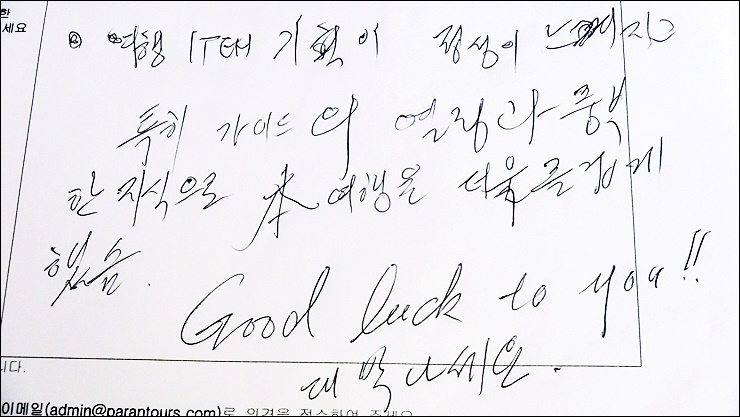 한
세요
◎ 여행 ITEM 기획이 정성이 느껴지고
특히 가이드의 열정과 풍부
한 지식으로 本 여행을 더욱 즐겁게
했슴.
Good luck to you!!
대박나세요.
니다.
이메일(admin@parantours.com)로 의견을 접수하여 주세요